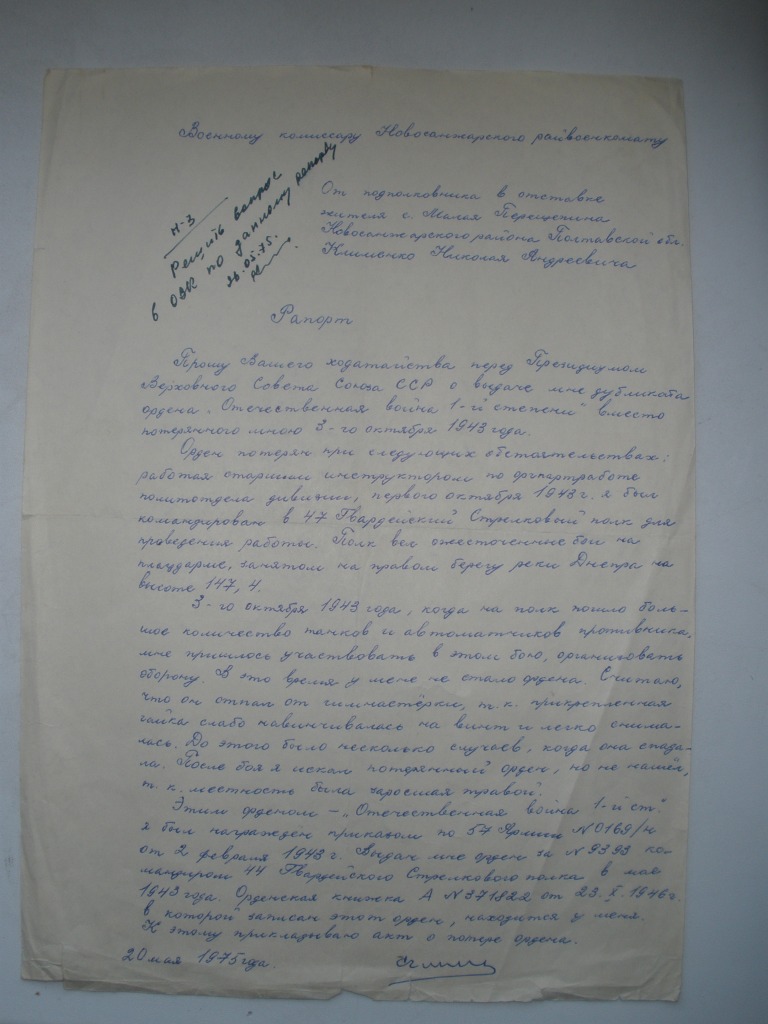 Военному комиссару Новосанжарского райвоенкомату
Н-3
Решить вопрос
в ОВК по данному рапорту
26.05.75.
От подполковника в отставке
жителя с. Малая Перещепина
Новосанжарского района Полтавской обл.
Клименко Николая Андреевича
Рапорт
Прошу Вашего ходатайства перед Президиумом
Верховного Совета Союза ССР о выдаче мне дубликата
ордена „Отечественная война 1-й степени" вместо
потерянного мною 3-го октября 1943 года.
Орден потерян при следующих обстоятельствах:
работая старшим инструктором по оргпартработе
политотдела дивизии, первого октября 1943 г. я был
командирован в 47 Гвардейский Стрелковый полк для
проведения работы. Полк вел ожесточенные бои на
плацдарме, занятом на правом берегу реки Днепра на
высоте 147,4.
3-го октября 1943 года, когда на полк пошло боль-
шое количество танков и автоматчиков противника,
мне пришлось участвовать в этом бою, организовать
оборону. В это время у меня не стало ордена. Считаю,
что он отпал от гимнастёрки, т.к. прикрепленная
гайка слабо навинчивалась на винт и легко снима-
лась. До этого было несколько случаев, когда она спада-
ла. После боя я искал потерянный орден, но не нашёл,
т.к. местность была заросшая травой.
Этим орденом – „Отечественная война 1-й ст."
я был награждён приказом по 57 Армии N 0169/н
от 2 февраля 1943 г. Выдан мне орден за N 9393 ко-
мандиром 44 Гвардейского Стрелкового полка в мае
1943 года. Орденская книжка А N 371822 от 23.X.1946 г.
в которой записан этот орден, находится у меня.
К этому прикладываю акт о потере ордена.
20 мая 1975 года.